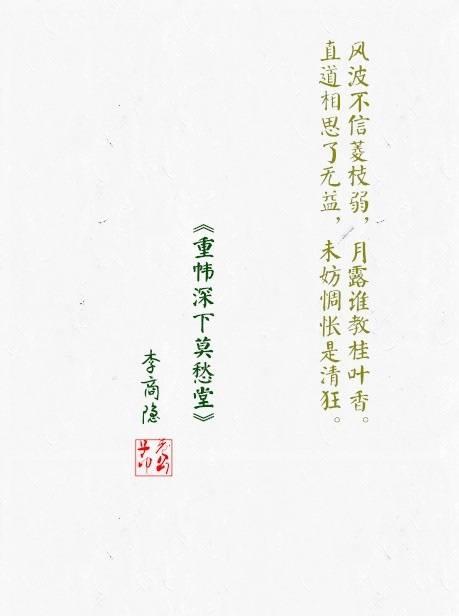 风波不信菱枝弱，月露谁教桂叶香。
直道相思了无益，未妨惆怅是清狂。
《重帏深下莫愁堂》
李商隐